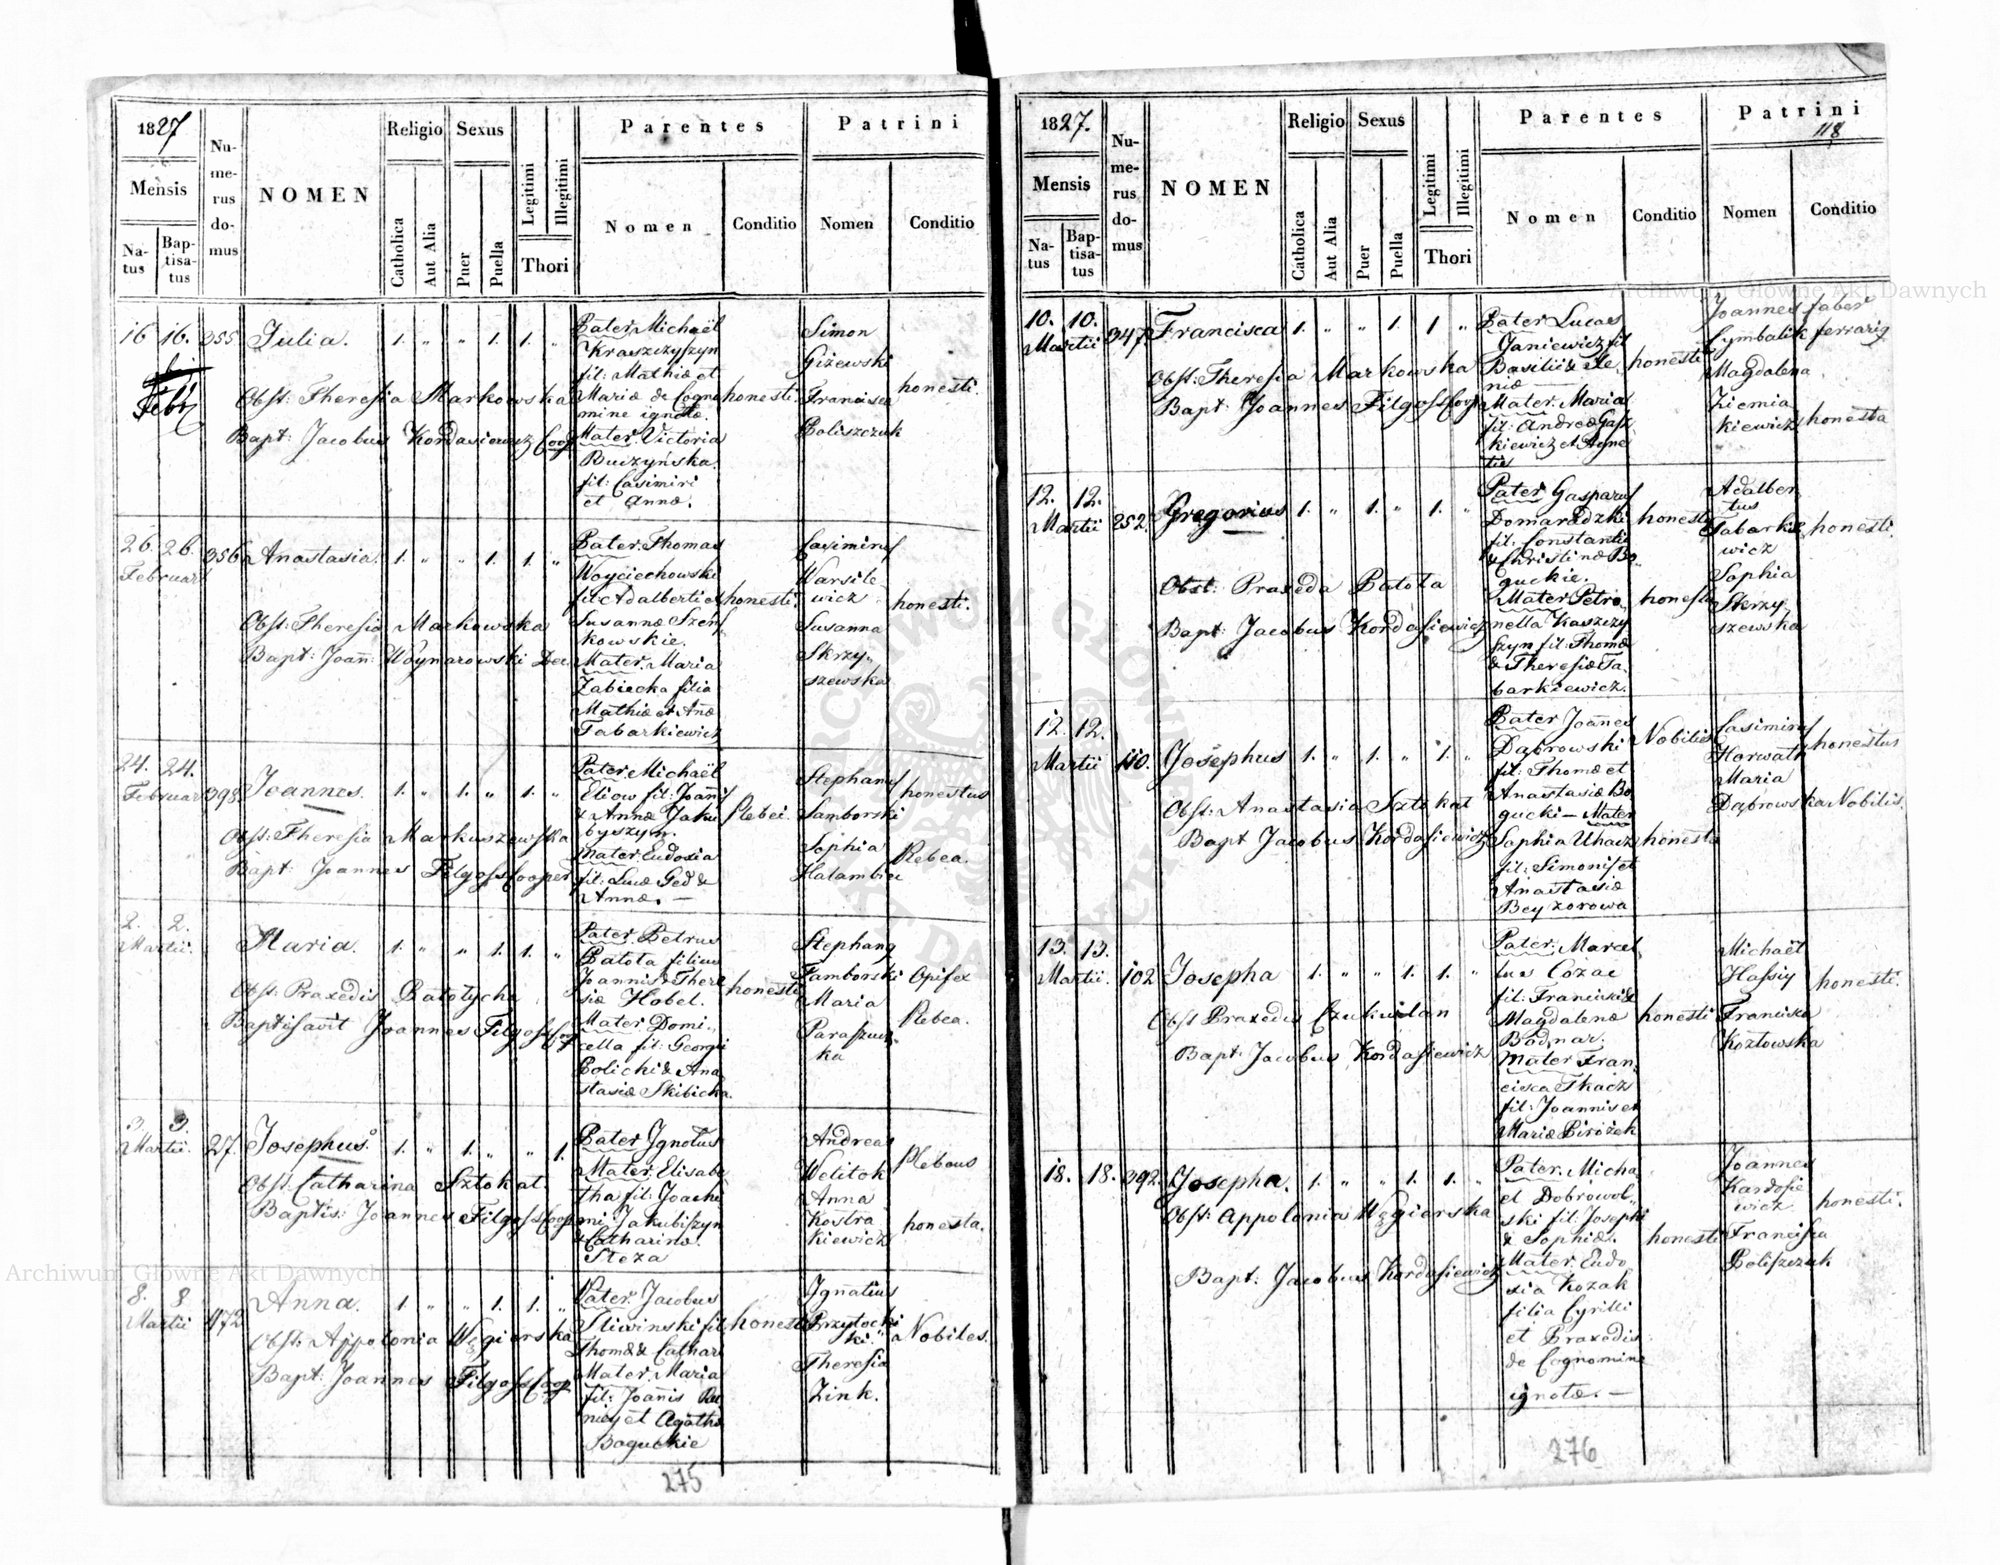 1827
Mensis
Na-
tus
Bap-
tisa-
tus
Nu-
me-
rus
do-
mus
NOMEN
Religio
Catholica
Aut Alia
Sexus
Puer
Puella
Legitimi
Illegitimi
Thori
Parentes
Nomen
Conditio
Patrini
Nomen
Conditio
16 16. 355 Julia. 1. „ „ 1. 1. „
Febr
Obst: Theresia Markowska
Bapt: Jacobus Kordasiewicz Coop
Pater Michaël
Kraszczyszyn
fil: Mathiæ et
Mariæ de Cogno
mine ignotæ.
Mater Victoria
Buczyńska.
fil: Casimiri
et Annæ.
honesti.
Simon
Giżewski
Francisca
Poliszczuk
honesti.
26. 26. 356 Anastasia. 1. „ „ 1. 1. „
Februar
Obst: Theresia Markowska
Bapt: Joañ: Woynarowski Dec
Pater Thomas
Woyciechowski
fil: Adalberti et
Susannæ Szens
kowskie.
Mater. Maria
Zabiecka filia
Mathiæ et Añæ
Tabarkiewicz
honesti.
Casimirus
Wasile
wicz
Susanna
Skrzy„
szewska
honesti.
24. 24.
Februar 398. Joannes. 1. „ 1. „ 1. „
Obst: Theresia Markuszewska
Bapt: Joannes Filgoss Cooper
Pater Michaël
Eliow fil: Joañis
& Annæ Jaku
byszyn.
Mater Eudoxia
fil: Lucæ Ged &
Annæ. —
Plebei.
Stephanus
Samborski
Sophia
Halambiec
honestus
Plebea.
2. 2.
Martii. Maria. 1. „ „ 1. 1. „
Obst: Praxedis Batołycha
Baptisavit Joannes Filgoss Coop
Pater Petrus
Batota filius
Joannis & There
siæ Hobel.
Mater Domi„
cella fil: Georgii
Bolichi & Ana
stasiæ Skibicka.
honesti
Stephanus
Samborski
Maria
Paraszuc„
ka
Opifex
Plebea.
3. 3.
Martii. 27. Josephus. 1. „ 1. „ „ 1.
Obst: Catharina Sztokat
Baptis: Joannes Filgoss Coop
Pater Ignotus
Mater. Elisabe
tha fil: Joachi
mi Jakubiszyn
& Catharinæ.
Steza
Andreas
Welitok
Anna
Kostra
kiewicz
Plebeus
honesta.
8. 8
Martii 172 Anna. 1. „ „ 1. 1. „
Obst: Appolonia Węgierska
Bapt: Joannes Filgoss Coop
Pater. Jacobus
Sliwinski fil:
Thomæ & Cathari
Mater. Maria
fil: Joañis
et Agathæ
Boguckie
honesti
Ignatius
Przyłocki
Theresia
Zink.
Nobiles.
275
1827.
Mensis
Na-
tus
Bap-
tisa-
tus
Nu-
me-
rus
do-
mus
NOMEN
Religio
Catholica
Aut Alia
Sexus
Puer
Puella
Legitimi
Illegitimi
Thori
Parentes
Nomen
Conditio
Patrini
118
Nomen
Conditio
10. 10.
Martii 347 Francisca 1. „ „ 1. 1 „
Obst: Theresia Markowska
Bapt: Joannes Filgoss Coop
Pater Lucas
Janiewicz fil
Basilii & Xe
niæ
Mater. Maria
fil: Andreæ Gasz
kiewicz et Agne
tis
honesti
Joannes
Cymbalik
Magdalena
Ziemia
kiewicz
faber
ferrarig
honesta
12. 12.
Martii 252. Gregorius 1. „ 1. „ 1. „
Obst: Praxeda Batota
Bapt: Jacobus Kordasiewicz
Pater Gasparus
Domaradzki
fil: Constantii
& Christinæ Bo
guckie.
Mater Petro
nella Kaszczy
szyn fil: Thomæ
& Theresiæ Ta
barkiewicz.
honesti
honesta
Adalber
tus
Tabarkie
wicz
Sophia
Skrzy
szewska
honesti.
12. 12.
Martii 110. Josephus 1. „ 1. „ 1. „
Obst: Anastasia Sztokat
Bapt Jacobus Kordasiewicz
Pater Joañes
Dąbrowski
fil: Thomæ et
Anastasiæ Bo
gucki — Mater
Sophia Uhacz
fil: Simonis et
Anastasiæ
Beyzorowa
Nobilis
honesta
Casimirus
Horwath
Maria
Dąbrowska
honestus
Nobilis.
13. 13.
Martii. 102 Josepha 1. „ „ 1. 1. „
Obst Praxedis Czukwilan
Bapt: Jacobus Kordasiewicz
Pater. Marcel
lus Cozac
fil: Francisci &
Magdalenæ
Bodnar.
Mater Fran
cisca Tkacz
fil: Joannis et
Mariæ Pirożek
honesti
Michaël
Hassiy
Francisca
Kozłowska
honesti.
18. 18. 392. Josepha. 1. „ „ 1. 1. „
Obst: Appolonia Węgierska
Bapt: Jacobus Kordasiewicz
Pater. Micha
el Dobrowol„
ski fil: Josephi
& Sophiæ.
Mater. Eudo
xia Kozak
filia Cyrilli
et Praxedis
de Cognomine
ignotæ. —
honesti
Joannes
Kardasie
wicz
Francisca
Poliszczuk
honesti.
276
Archiwum Główne Akt Dawnych
Archiwum Główne Akt Dawnych
ARCHIWUM GŁÓWNE AKT DAWNYCH